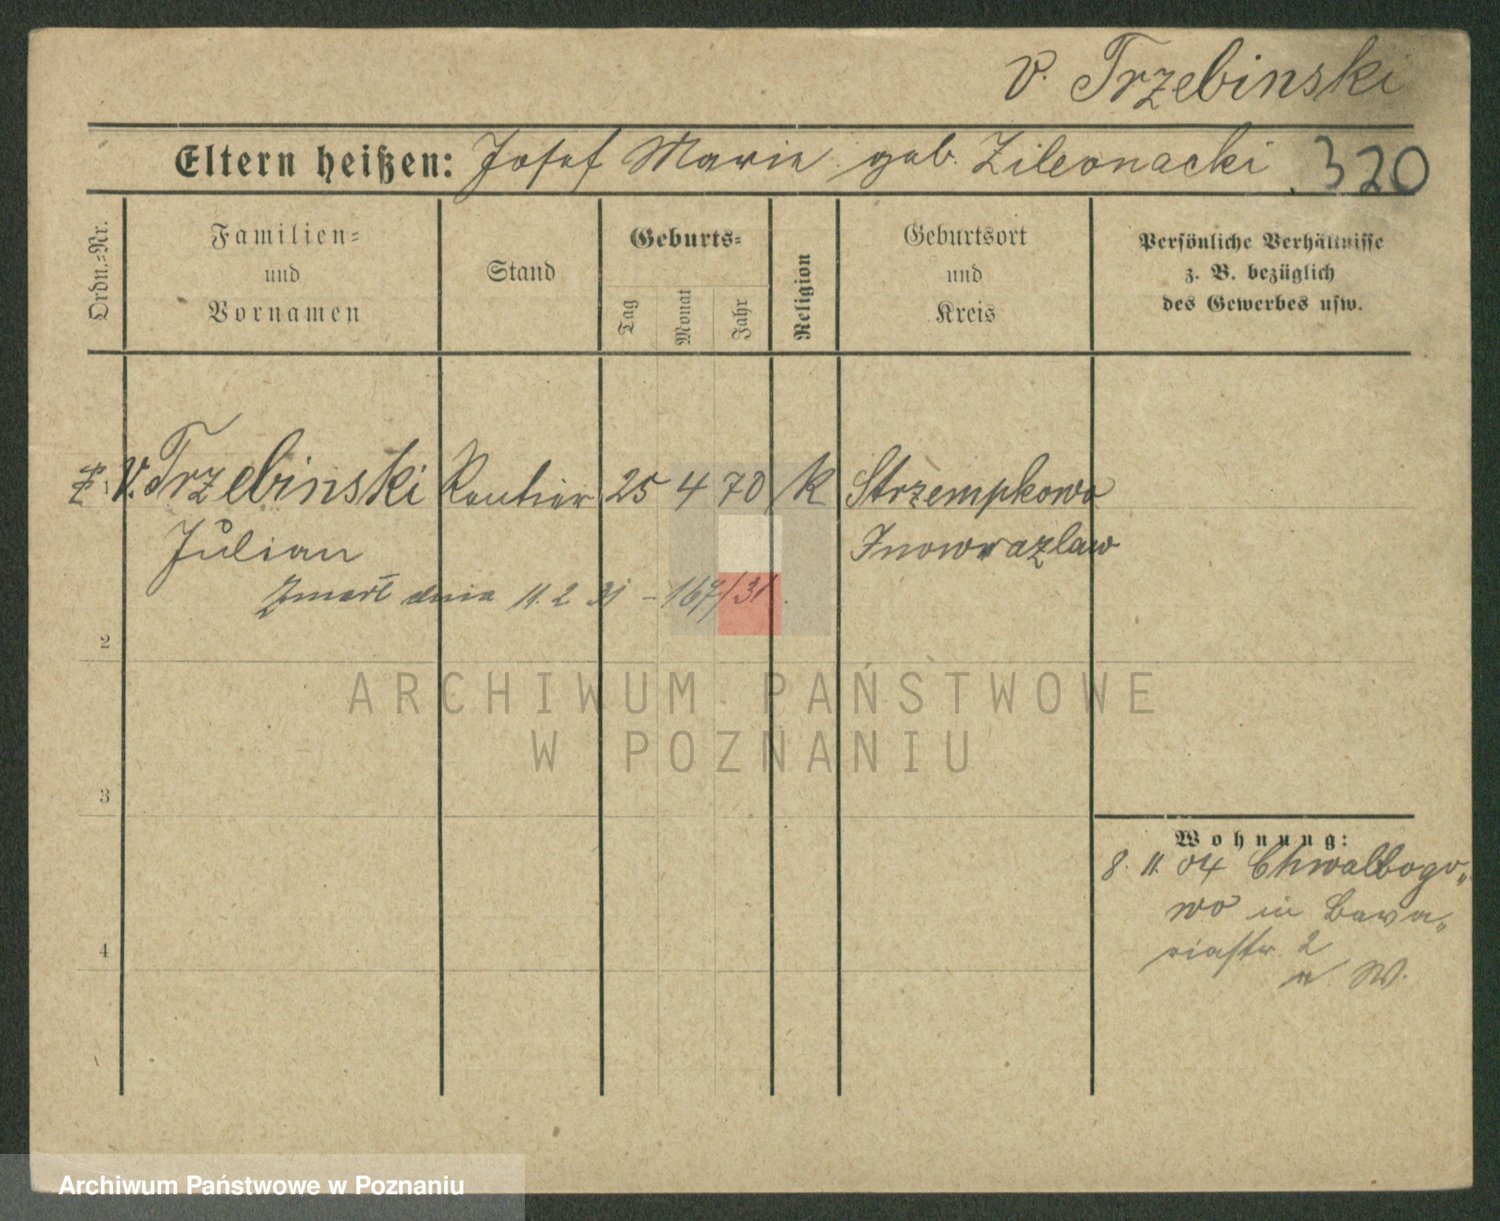 v. Trzebinski
Eltern heißen: Josef Marie geb. Zileonacki 320
Ordn.-Nr.
Familien-
und
Vornamen
Stand
Geburts-
Tag
Monat
Jahr
Religion
Geburtsort
und
Kreis
Persönliche Verhältnisse
z. B. bezüglich
des Gewerbes usw.
v. Trzebinski Rentier 25 4 70 k Strzempkowo
Julian Inowrazlaw
Zmarł dnia 11.2 31 - 167/31.
2
3
4
Wohnung:
8. 11. 04 Chwalbogo„
wo in Bava„
riastr. 2
W.
ARCHIWUM PAŃSTWOWE
W POZNANIU
Archiwum Państwowe w Poznaniu